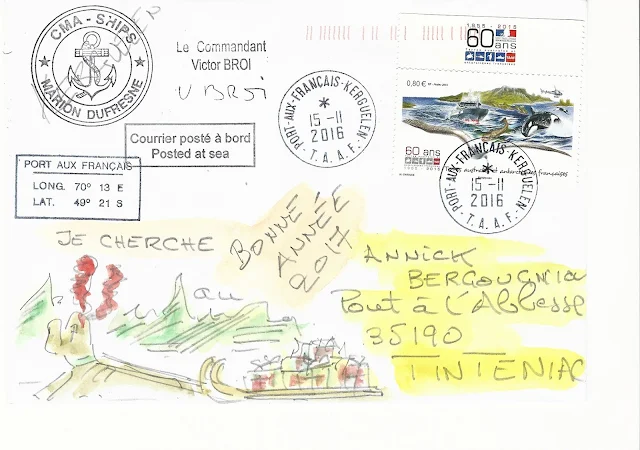 CMA - SHIPS
MARION DUFRESNE
Le Commandant
Victor BROI
V BROi
Courrier posté à bord
Posted at sea
PORT AUX FRANÇAIS
LONG. 70° 13 E
LAT. 49° 21 S
PORT-AUX-FRANÇAIS-KERGUELEN
15-11
2016
T.A.A.F.
1955 - 2015
60 ans
0,80 €
60 ans
australes et antarctiques françaises
PORT-AUX-FRANÇAIS-KERGUELEN
15-11
2016
T.A.A.F.
JE CHERCHE
BONNE
ANNÉE
2017
au
ANNICK
Pont à L'Abbesse
35190
TINTENIAC